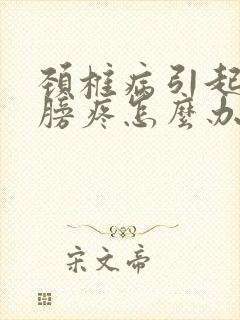 颈椎病引起
膀疼怎麼办
宋文帝